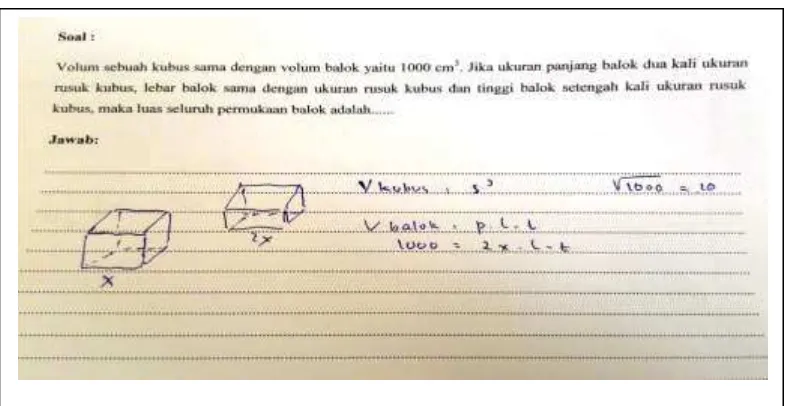 Soal :
Volum sebuah kubus sama dengan volum balok yaitu 1000 cm³. Jika ukuran panjang balok dua kali ukuran
rusuk kubus, lebar balok sama dengan ukuran rusuk kubus dan tinggi balok setengah kali ukuran rusuk
kubus, maka luas seluruh permukaan balok adalah......
Jawab:
V kubus : s³ √1000 = 10
V balok : p. l. t
1000 = 2x . l . t
2x
x